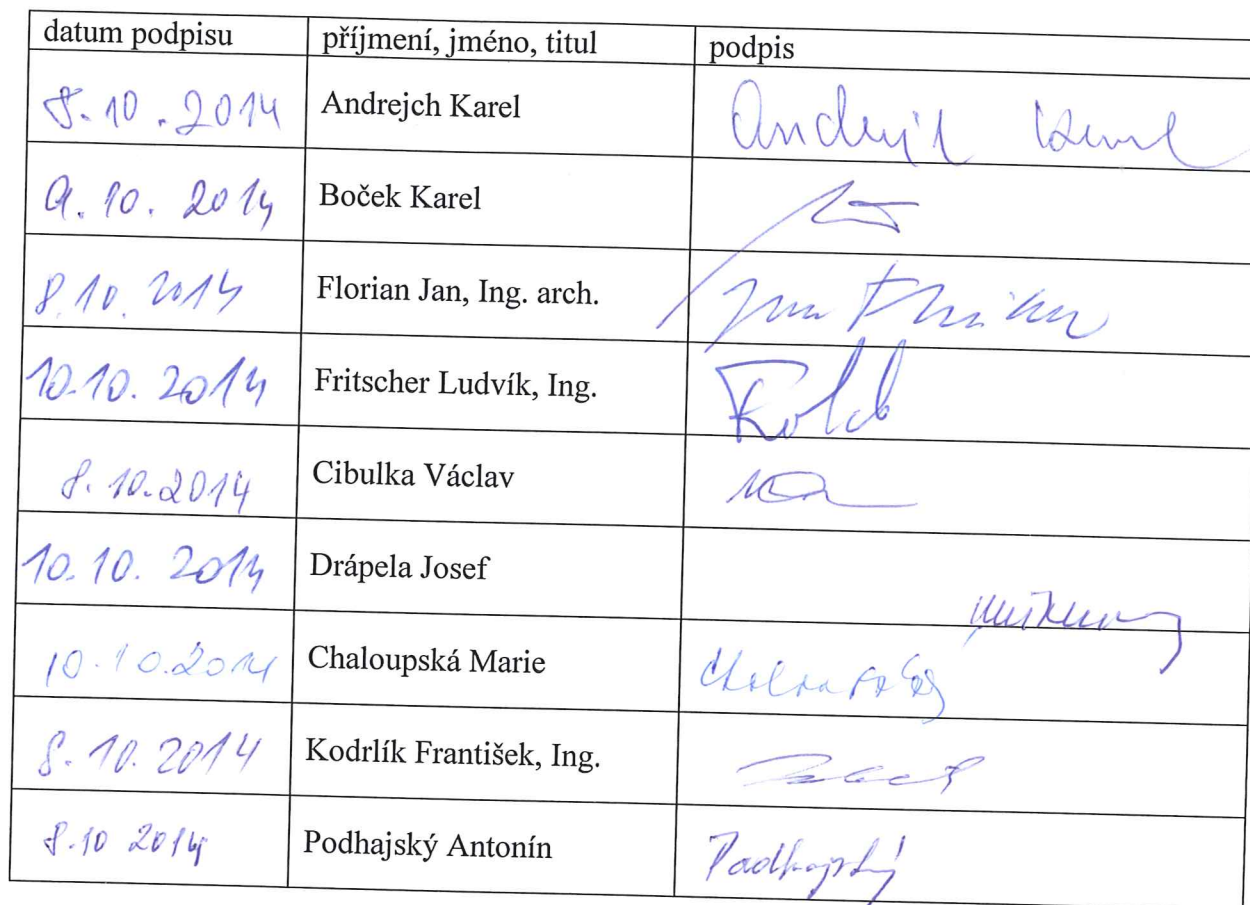 datum podpisu příjmení, jméno, titul podpis
8.10.2014 Andrejch Karel
9.10.2014 Boček Karel
8.10.2014 Florian Jan, Ing. arch.
10.10.2014 Fritscher Ludvík, Ing.
8.10.2014 Cibulka Václav
10.10.2014 Drápela Josef
10.10.2014 Chaloupská Marie
8.10.2014 Kodrlík František, Ing.
8.10 2014 Podhajský Antonín Podhajský